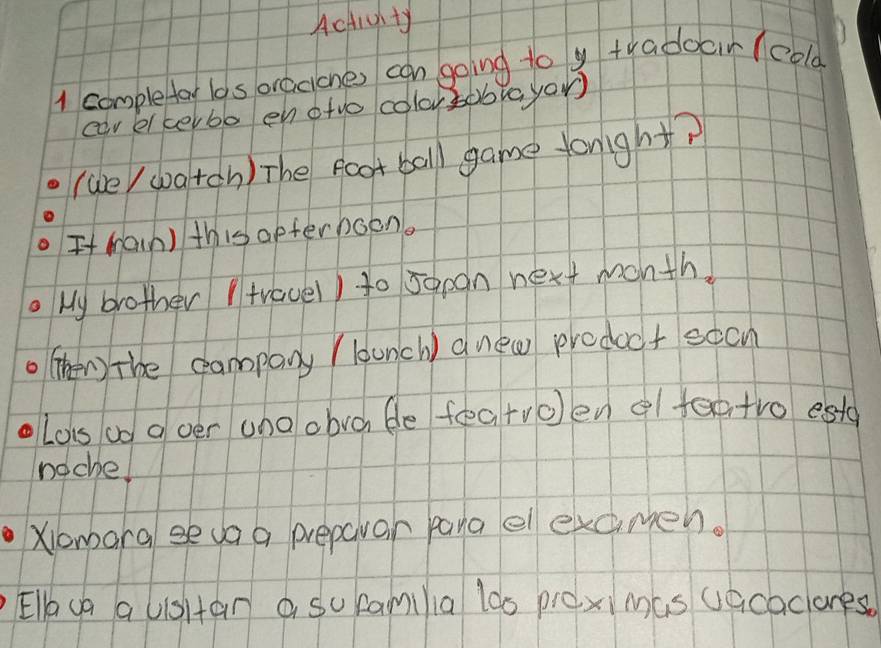 Activity
1 completar las oraciones con going to y traducir (colo
car el verbo en otro color subrayar)
(we/watch) The Foot ball game tonight?
It (rain) this afternoon.
My brother (travel) to Japan next month.
(Then) The company (launch) a new product soon
Luis va a ver una obra (de teatro) en el teatro esta
noche.
Xiomara se va a preparar para el examen.
Ella va a visitar a su familia las proximas vacaciones.